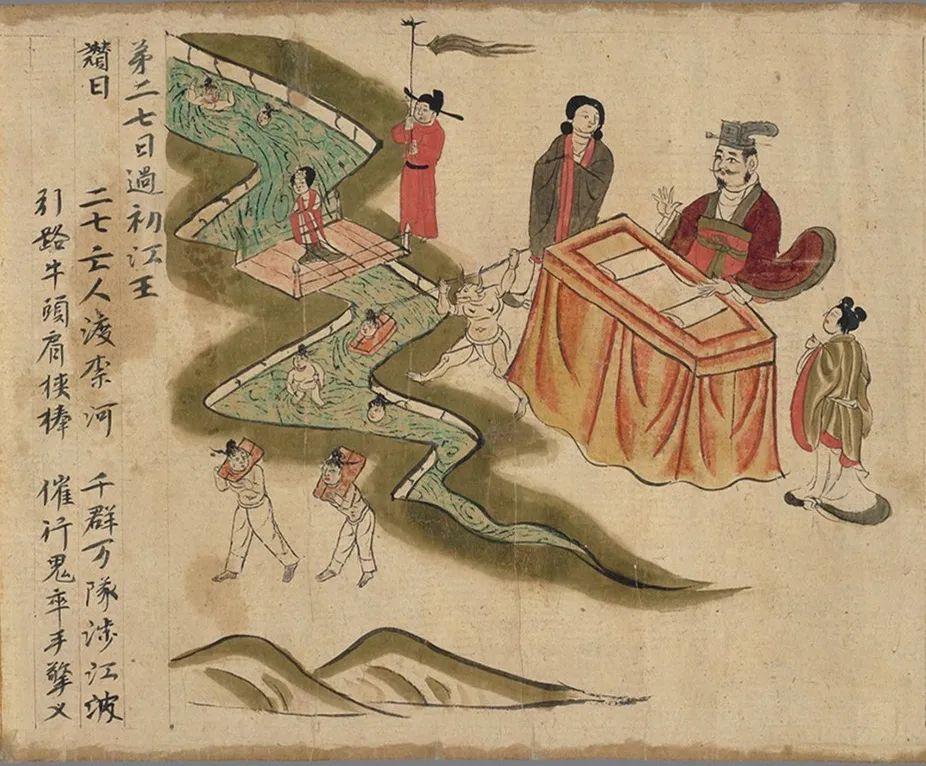 苐二七日過初江王
讃曰 二七亡人渡柰河 千群万隊涉江波
引路牛頭肩俠棒 催行鬼卒手擎叉